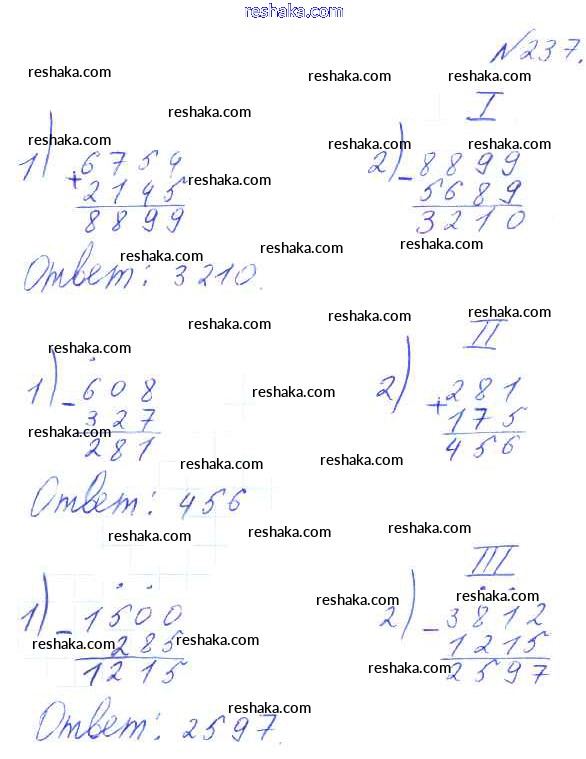 reshaka.com
№237.
reshaka.com
reshaka.com reshaka.com
reshaka.com
I
reshaka.com reshaka.com
1) + 6754 2) - 8899
2145 reshaka.com 5689
8899 3210
reshaka.com reshaka.com reshaka.com
Ответ: 3210.
reshaka.com reshaka.com reshaka.com
II
reshaka.com
1) - 608 2) + 281
reshaka.com
327 175
reshaka.com
281 456
reshaka.com reshaka.com
Ответ: 456
reshaka.com reshaka.com reshaka.com
III
reshaka.com reshaka.com
1) - 1500 2) - 3812
285 1215
reshaka.com reshaka.com
1215 2597
reshaka.com
reshaka.com
Ответ: 2597.
reshaka.com